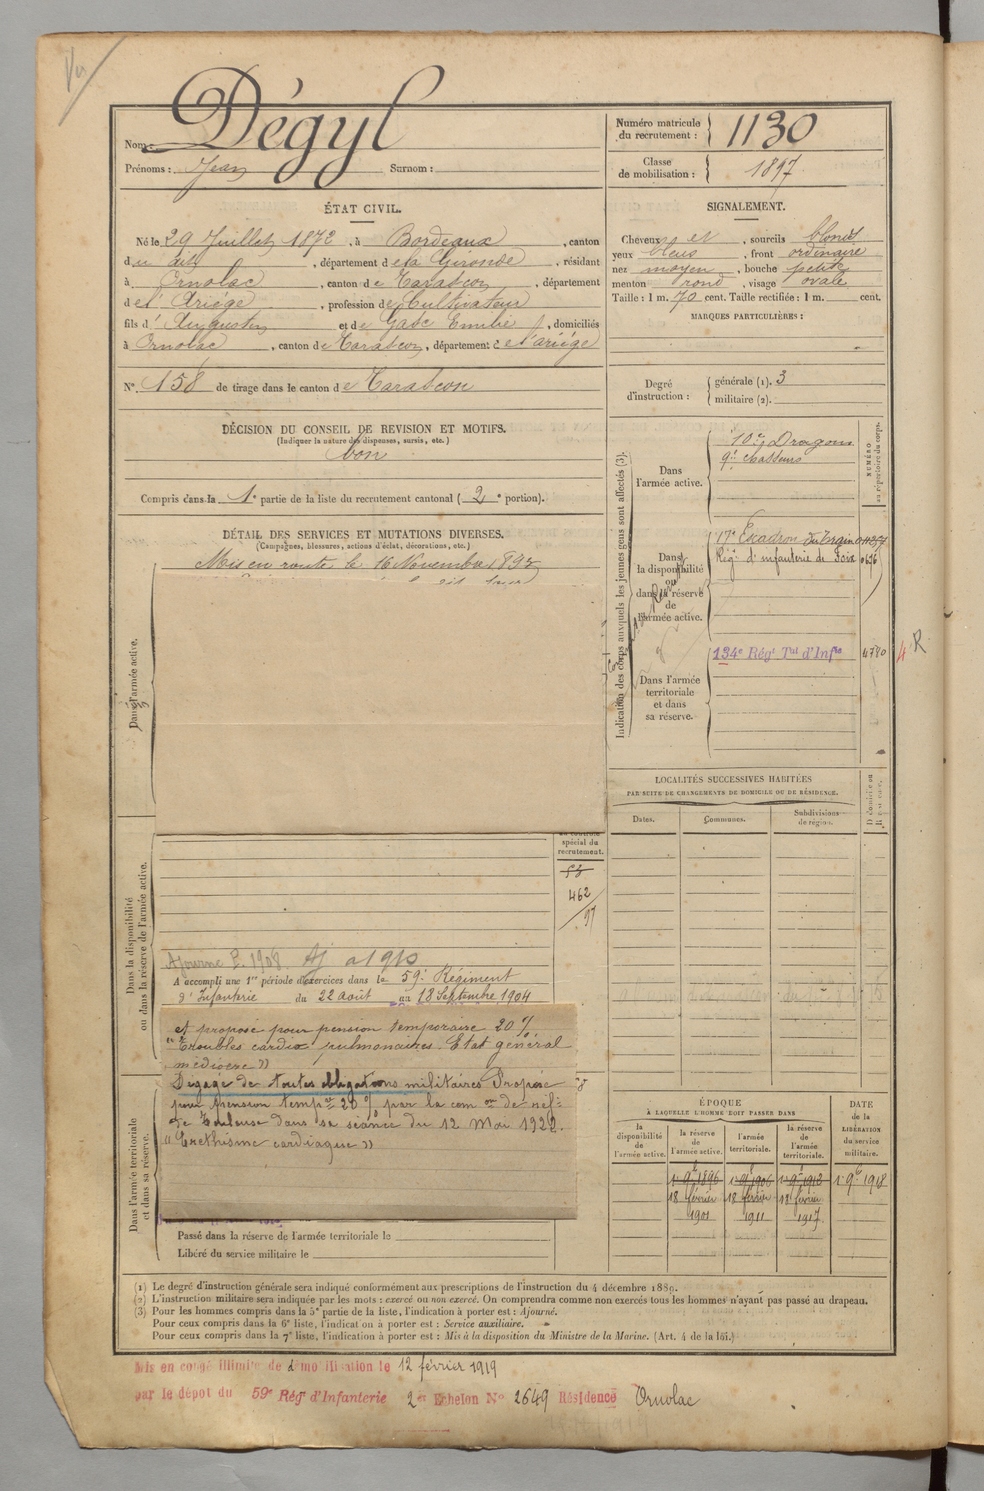 Nom : Dégyl
Prénoms : Jean Surnom :
Numéro matricule du recrutement : 1130
Classe de mobilisation : 1897
ÉTAT CIVIL.
Né le 29 Juillet 1872, à Bordeaux, canton
du dit, département de la Gironde, résidant
à Ornolac, canton de Tarascon, département
de l'Ariège, profession de Cultivateur
fils d'Augustin et de Gasc Emilie, domiciliés
à Ornolac, canton de Tarascon, département de l'ariège
N° 158 de tirage dans le canton de Tarascon
DÉCISION DU CONSEIL DE REVISION ET MOTIFS.
(Indiquer la nature des dispenses, sursis, etc.)
bon
Compris dans la 1e partie de la liste du recrutement cantonal (2e portion).
DÉTAIL DES SERVICES ET MUTATIONS DIVERSES.
(Campagnes, blessures, actions d'éclat, décorations, etc.)
Mis en route le 16 Novembre 1893
Dans l'armée active.
SIGNALEMENT.
Cheveux et, sourcils blonds
yeux bleus, front ordinaire
nez moyen, bouche petite
menton rond, visage ovale
Taille : 1 m. 70 cent. Taille rectifiée : 1 m. cent.
MARQUES PARTICULIÈRES :
Degré d'instruction : générale (1). 3
militaire (2).
Indication des corps auxquels les jeunes gens sont affectés (3).
NUMÉRO au répertoire du corps.
Dans l'armée active.
10e Dragons
9e chasseurs
Dans la disponibilité ou dans la réserve de l'armée active.
17e Escadron du train
Régt d'infanterie de Foix
Dans l'armée territoriale et dans sa réserve.
134e Régt Tal d'Infie 4780
4 R
LOCALITÉS SUCCESSIVES HABITÉES
PAR SUITE DE CHANGEMENTS DE DOMICILE OU DE RÉSIDENCE.
Dates. Communes. Subdivisions de région.
spécial du recrutement.
53
462
97
Dans la disponibilité ou dans la réserve de l'armée active.
Ajourné 1908 Aj a 1910
A accompli une 1re période d'exercices dans le 59e Régiment
d'Infanterie du 22 Août au 18 Septembre 1904
et proposé pour pension temporaire 20%
"Troubles cardio pulmonaires. Etat général
médiocre"
Dégagé de toutes obligations militaires Proposé
pour pension tempre 20% par la com on de réf:
de Toulouse dans sa séance du 12 Mai 1922.
"Eréthisme cardiaque"
Dans l'armée territoriale et dans sa réserve.
Passé dans la réserve de l'armée territoriale le
Libéré du service militaire le
ÉPOQUE
À LAQUELLE L'HOMME DOIT PASSER DANS
la disponibilité de l'armée active. la réserve de l'armée active. l'armée territoriale. la réserve de l'armée territoriale.
DATE de la LIBÉRATION du service militaire.
1er 9bre 1896 1er 9bre 1906 1er 9bre 1912 1er 9bre 1918
18 février 18 février 18 février
1901 1911 1917
(1) Le degré d'instruction générale sera indiqué conformément aux prescriptions de l'instruction du 4 décembre 1889.
(2) L'instruction militaire sera indiquée par les mots : exercé ou non exercé. On comprendra comme non exercés tous les hommes n'ayant pas passé au drapeau.
(3) Pour les hommes compris dans la 5e partie de la liste, l'indication à porter est : Ajourné.
Pour ceux compris dans la 6e liste, l'indication à porter est : Service auxiliaire.
Pour ceux compris dans la 7e liste, l'indication à porter est : Mis à la disposition du Ministre de la Marine. (Art. 4 de la loi.)
Mis en congé illimité de démobilisation le 12 février 1919
par le dépôt du 59e Régt d'Infanterie 2e Echelon N° 2649 Résidence Ornolac